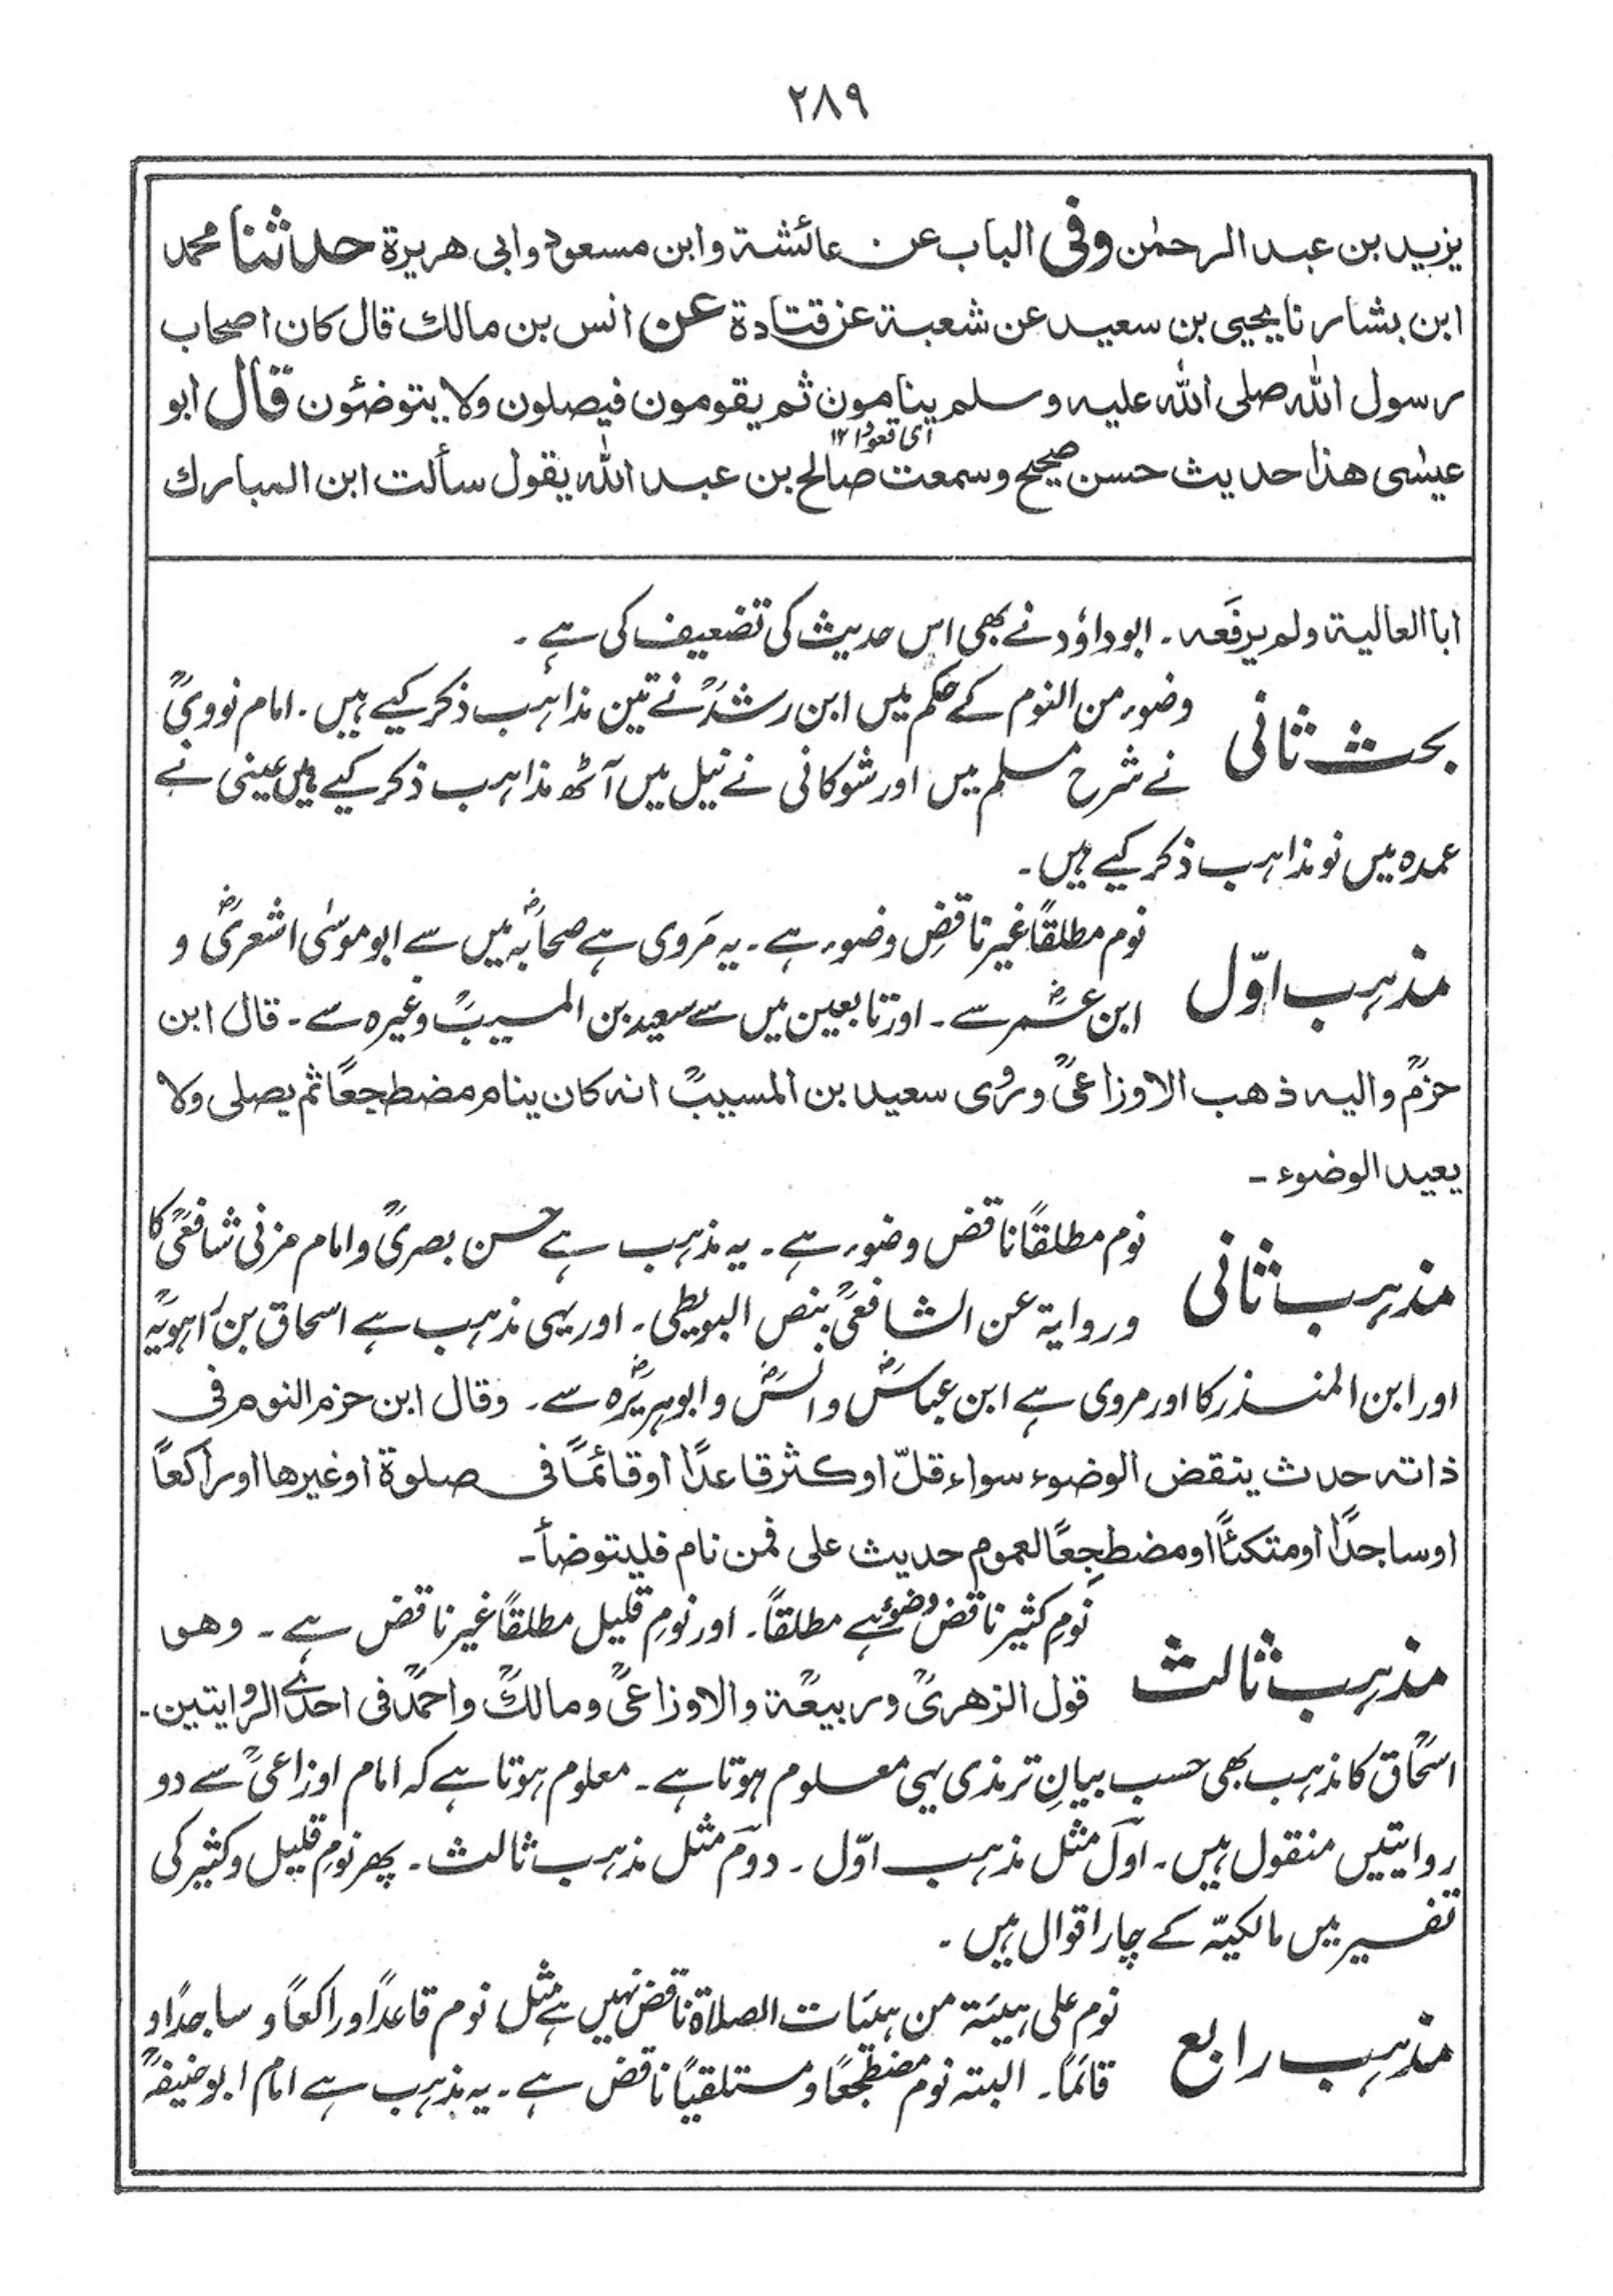 ۲۸۹
يزيد بن عبد الرحمٰن وفى الباب عن عائشة وابن مسعود وابى هريرة حدثنا محمد
ابن بشار نا يحيى بن سعيد عن شعبة عن قتادة عن انس بن مالك قال كان اصحاب
رسول الله صلى الله عليه وسلم ينامون ثم يقومون فيصلون ولا يتوضئون قال ابو
اى قعودا ١٢
عيسٰى هذا حديث حسن صحيح وسمعت صالح بن عبد الله يقول سألت ابن المبارك
ابا العالية ولم يرفَعه ۔ ابوداؤد نے بھی اس حدیث کی تضعیف کی ہے ۔
بحث ثانی وضوء من النوم کے حکم میں ابن رشدؒ نے تین مذاہب ذکر کیے ہیں ۔ امام نوویؒ
نے شرح مسلم میں اور شوکانی نے نیل میں آٹھ مذاہب ذکر کیے ہیں عینی نے
عمدہ میں نو مذاہب ذکر کیے ہیں ۔
مذہب اوّل نوم مطلقًا غیر ناقضِ وضوء ہے ۔ یہ مَروی ہے صحابہؓ میں سے ابوموسٰی اشعریؓ و
ابن عمرؓ سے ۔ اور تابعین میں سے سعید بن المسیبؒ وغیرہ سے ۔ قال ابن
حزمؒ واليه ذهب الاوزاعىؒ ورُوِى سعيد بن المسيبؒ انه كان ينام مضطجعًا ثم يصلى ولا
يعيد الوضوء ۔
مذہب ثانی نوم مطلقًا ناقض وضوء ہے ۔ یہ مذہب ہے حسن بصریؒ و امام مزنی شافعیؒ کا
ورواية عن الشافعىؒ بنص البويطى ۔ اور یہی مذہب ہے اسحاق بن راہویہؒ
اور ابن المنذر کا اور مروی ہے ابن عباسؓ و انسؓ و ابوہریرہؓ سے ۔ وقال ابن حزم النوم فى
ذاته حدث ينقض الوضوء سواء قلّ او كثر قاعدًا او قائمًا فى صلوة او غيرها او راكعًا
او ساجدًا او متكئًا او مضطجعًا لعموم حديث على فمن نام فليتوضأ ۔
مذہب ثالث نَومِ کثیر ناقض وضوء ہے مطلقاً ۔ اور نومِ قلیل مطلقاً غیر ناقض ہے ۔ وهو
قول الزهرىؒ وربيعةؒ والاوزاعىؒ ومالكؒ واحمدؒ فى احدى الروايتين ۔
اسحٰاقؒ کا مذہب بھی حسب بیانِ ترمذی یہی معلوم ہوتا ہے ۔ معلوم ہوتا ہے کہ امام اوزاعیؒ سے دو
روایتیں منقول ہیں ۔ اوّل مثل مذہب اوّل ۔ دوم مثل مذہب ثالث ۔ پھر نومِ قلیل وکثیر کی
تفسیر میں مالکیّہ کے چار اقوال ہیں ۔
مذہب رابع نوم علی ہیئۃ من ہئیات الصلاۃ ناقض نہیں ہے مثل نوم قاعداً و راکعاً و ساجداً و
قائمًا ۔ البتہ نوم مضطجعًا و مستلقیاً ناقض ہے ۔ یہ مذہب ہے امام ابوحنیفہؒ